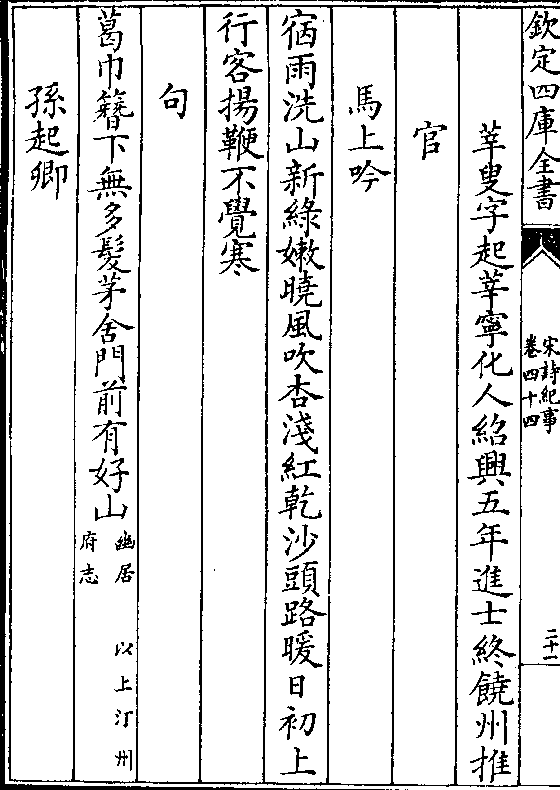 欽定四庫全書
宋詩紀事
卷四十四
二十一
莘叟字起莘寧化人紹興五年進士終饒州推
官
馬上吟
宿雨洗山新綠嫩曉風吹杏淺紅乾沙頭路暖日初上
行客揚鞭不覺寒
句
葛巾簪下無多髮茅舍門前有好山
幽居 以上汀州
府志
孫起卿